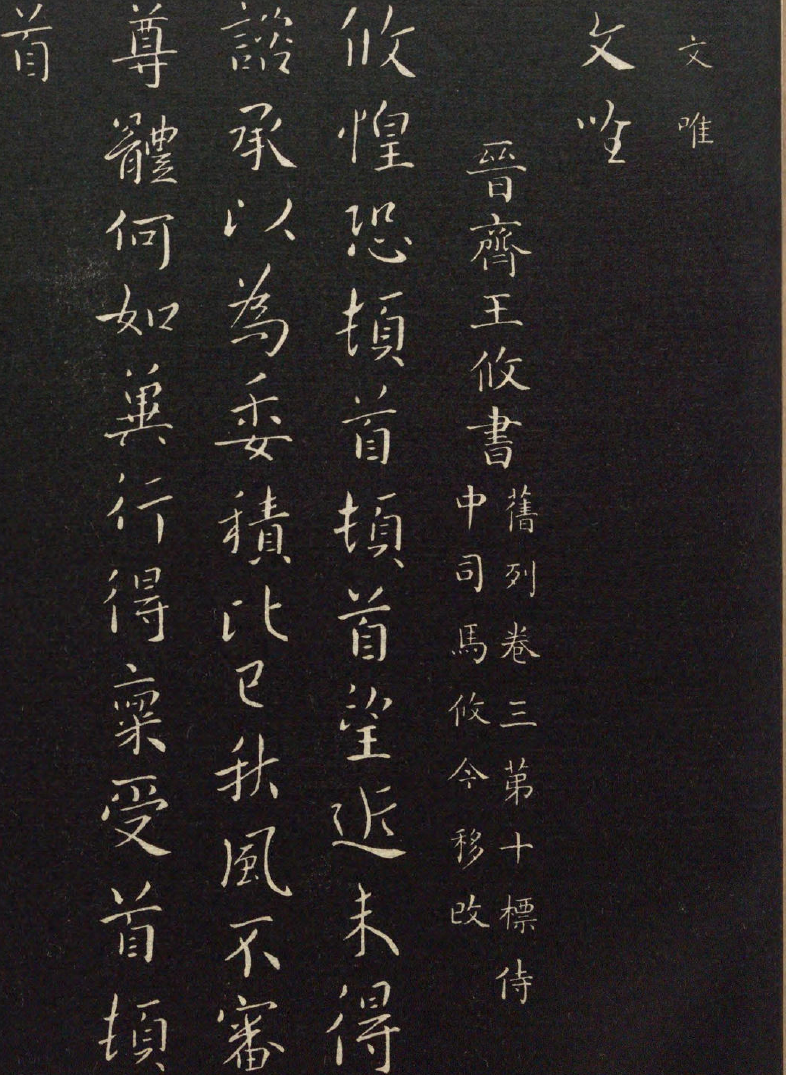 文唯
文唯
晉齊王攸書
舊列卷三第十標侍
中司馬攸今移改
攸惶恐頓首頓首望近未得
諮承以為委積比已秋風不審
尊體何如冀行得稟受首頓
首